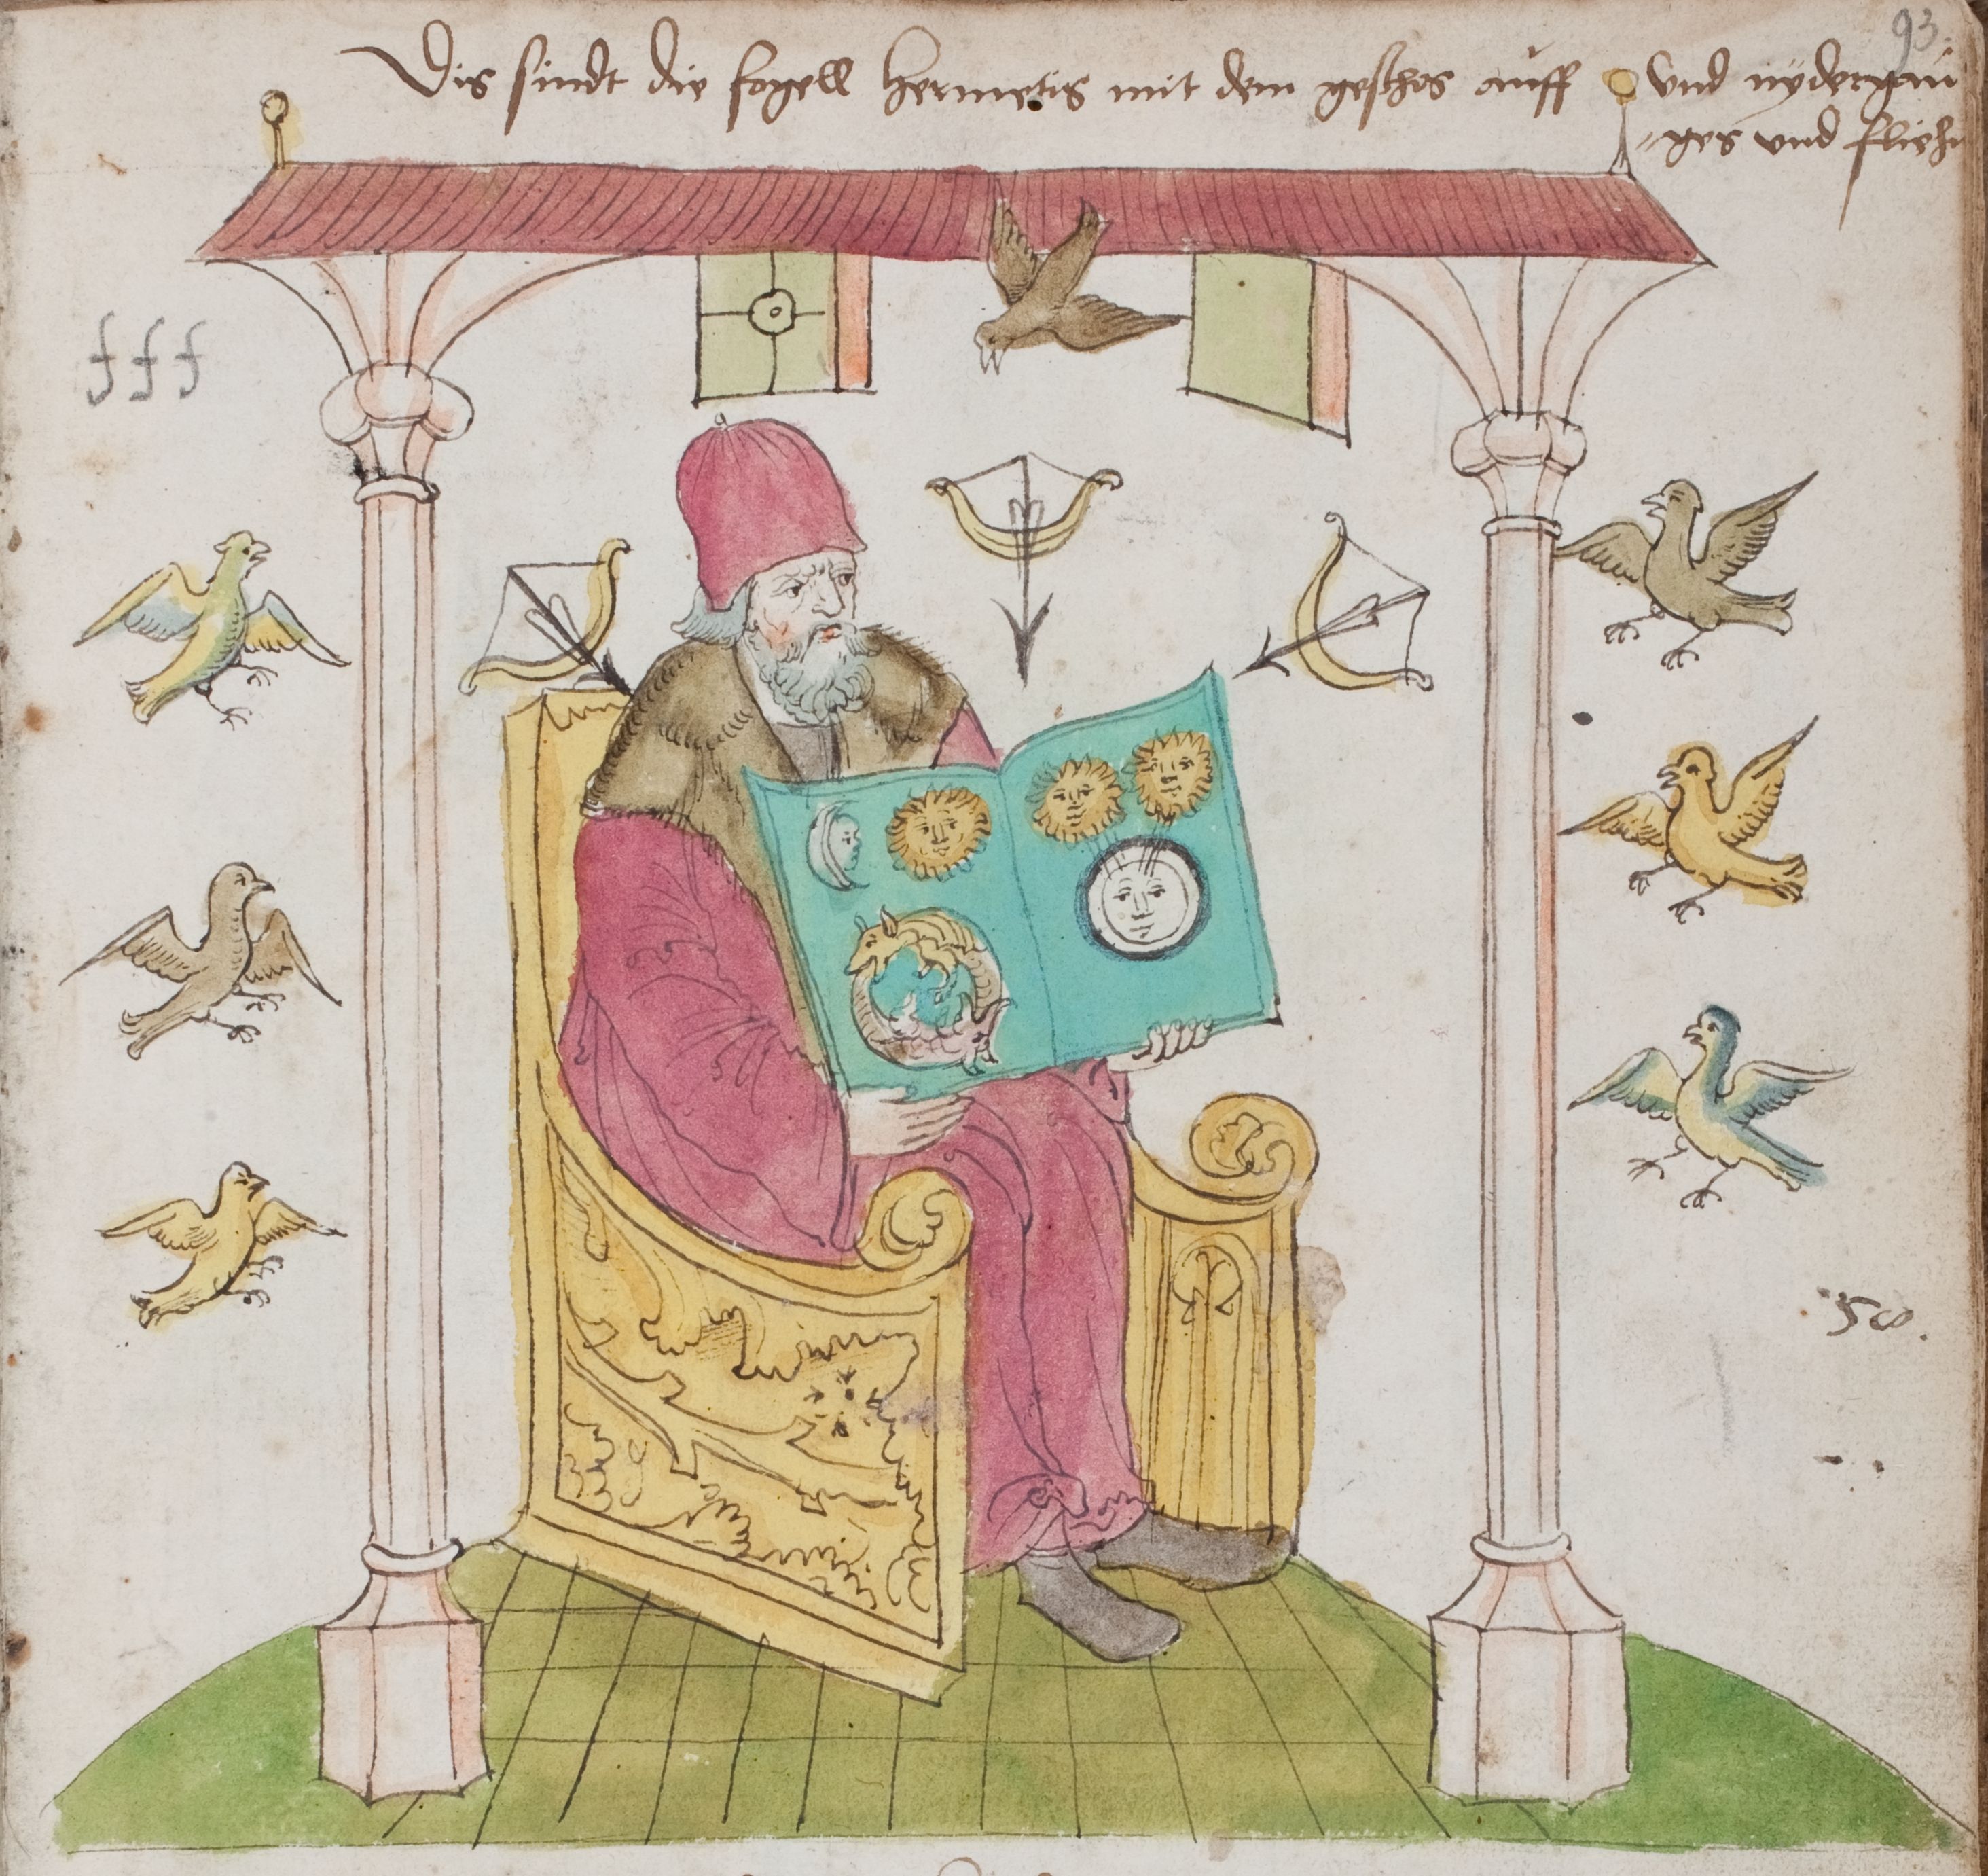 93.
Dis sindt die fogell hermetis mit dem geschos auff und nydergan
ges und fliehn
fff
58.